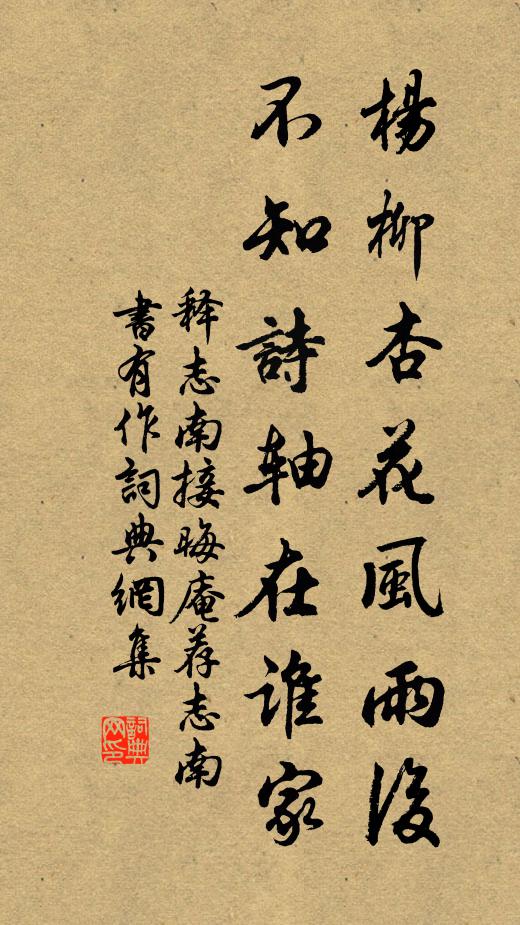 楊柳杏花風雨後
不知詩軸在誰家
释志南接晦庵荐志南
書有作詞典網集
詞典網印